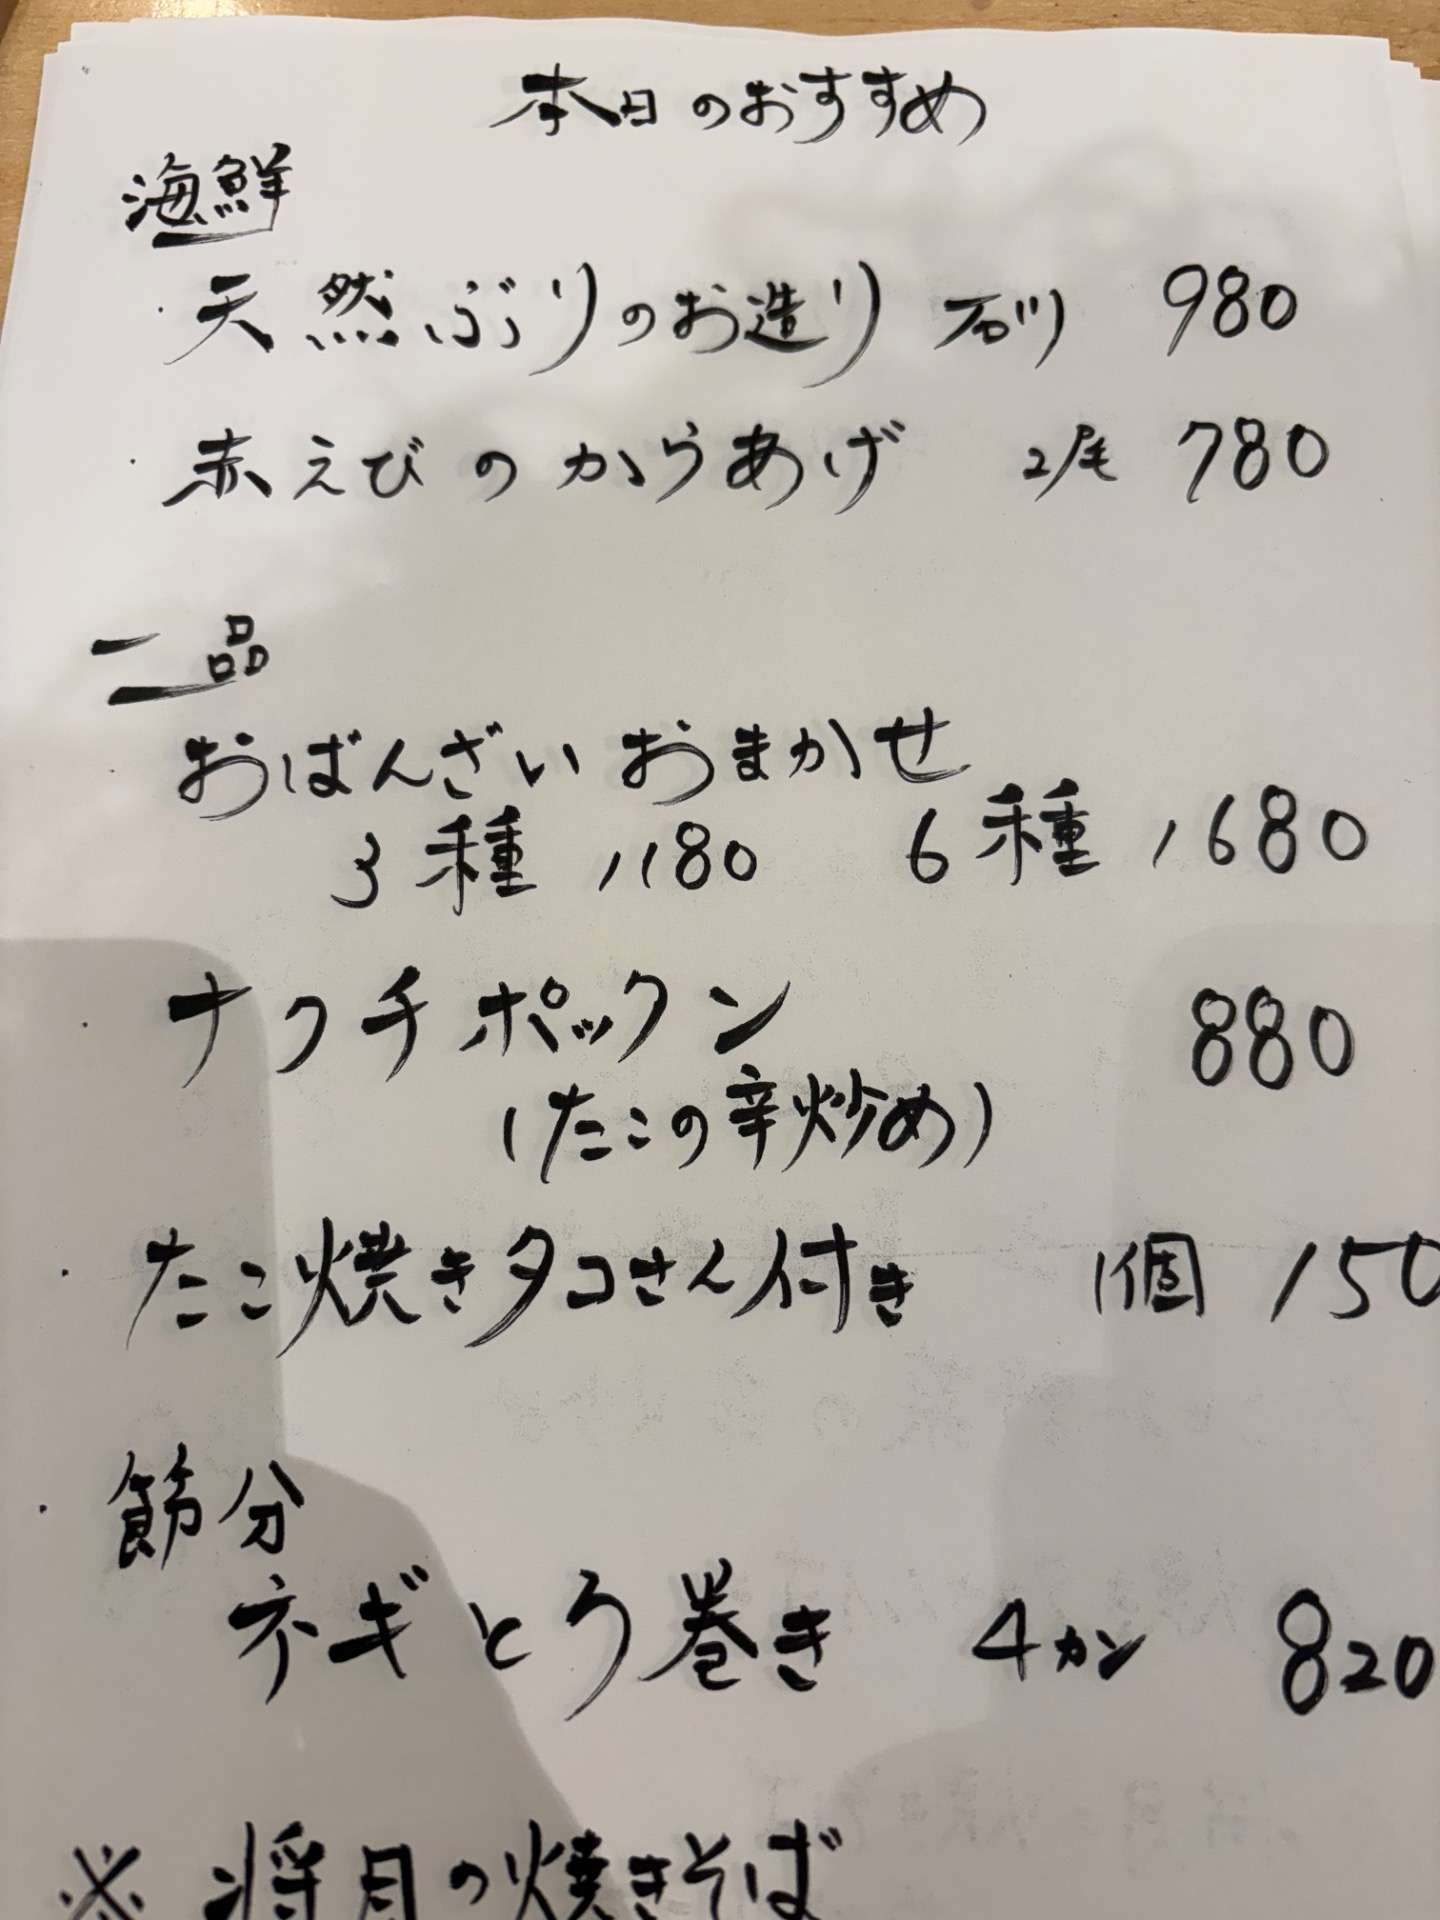 本日のおすすめ
海鮮
・天然ぶりのお造り 石川 980
・赤えびのからあげ 2尾 780
一品
・おばんざい おまかせ
3種 1180 6種 1680
・ナクチポックン 880
(たこの辛炒め)
・たこ焼きタコさん付き 1個 150
・節分
ネギとろ巻き 4カン 820
※ 将月の焼きそば